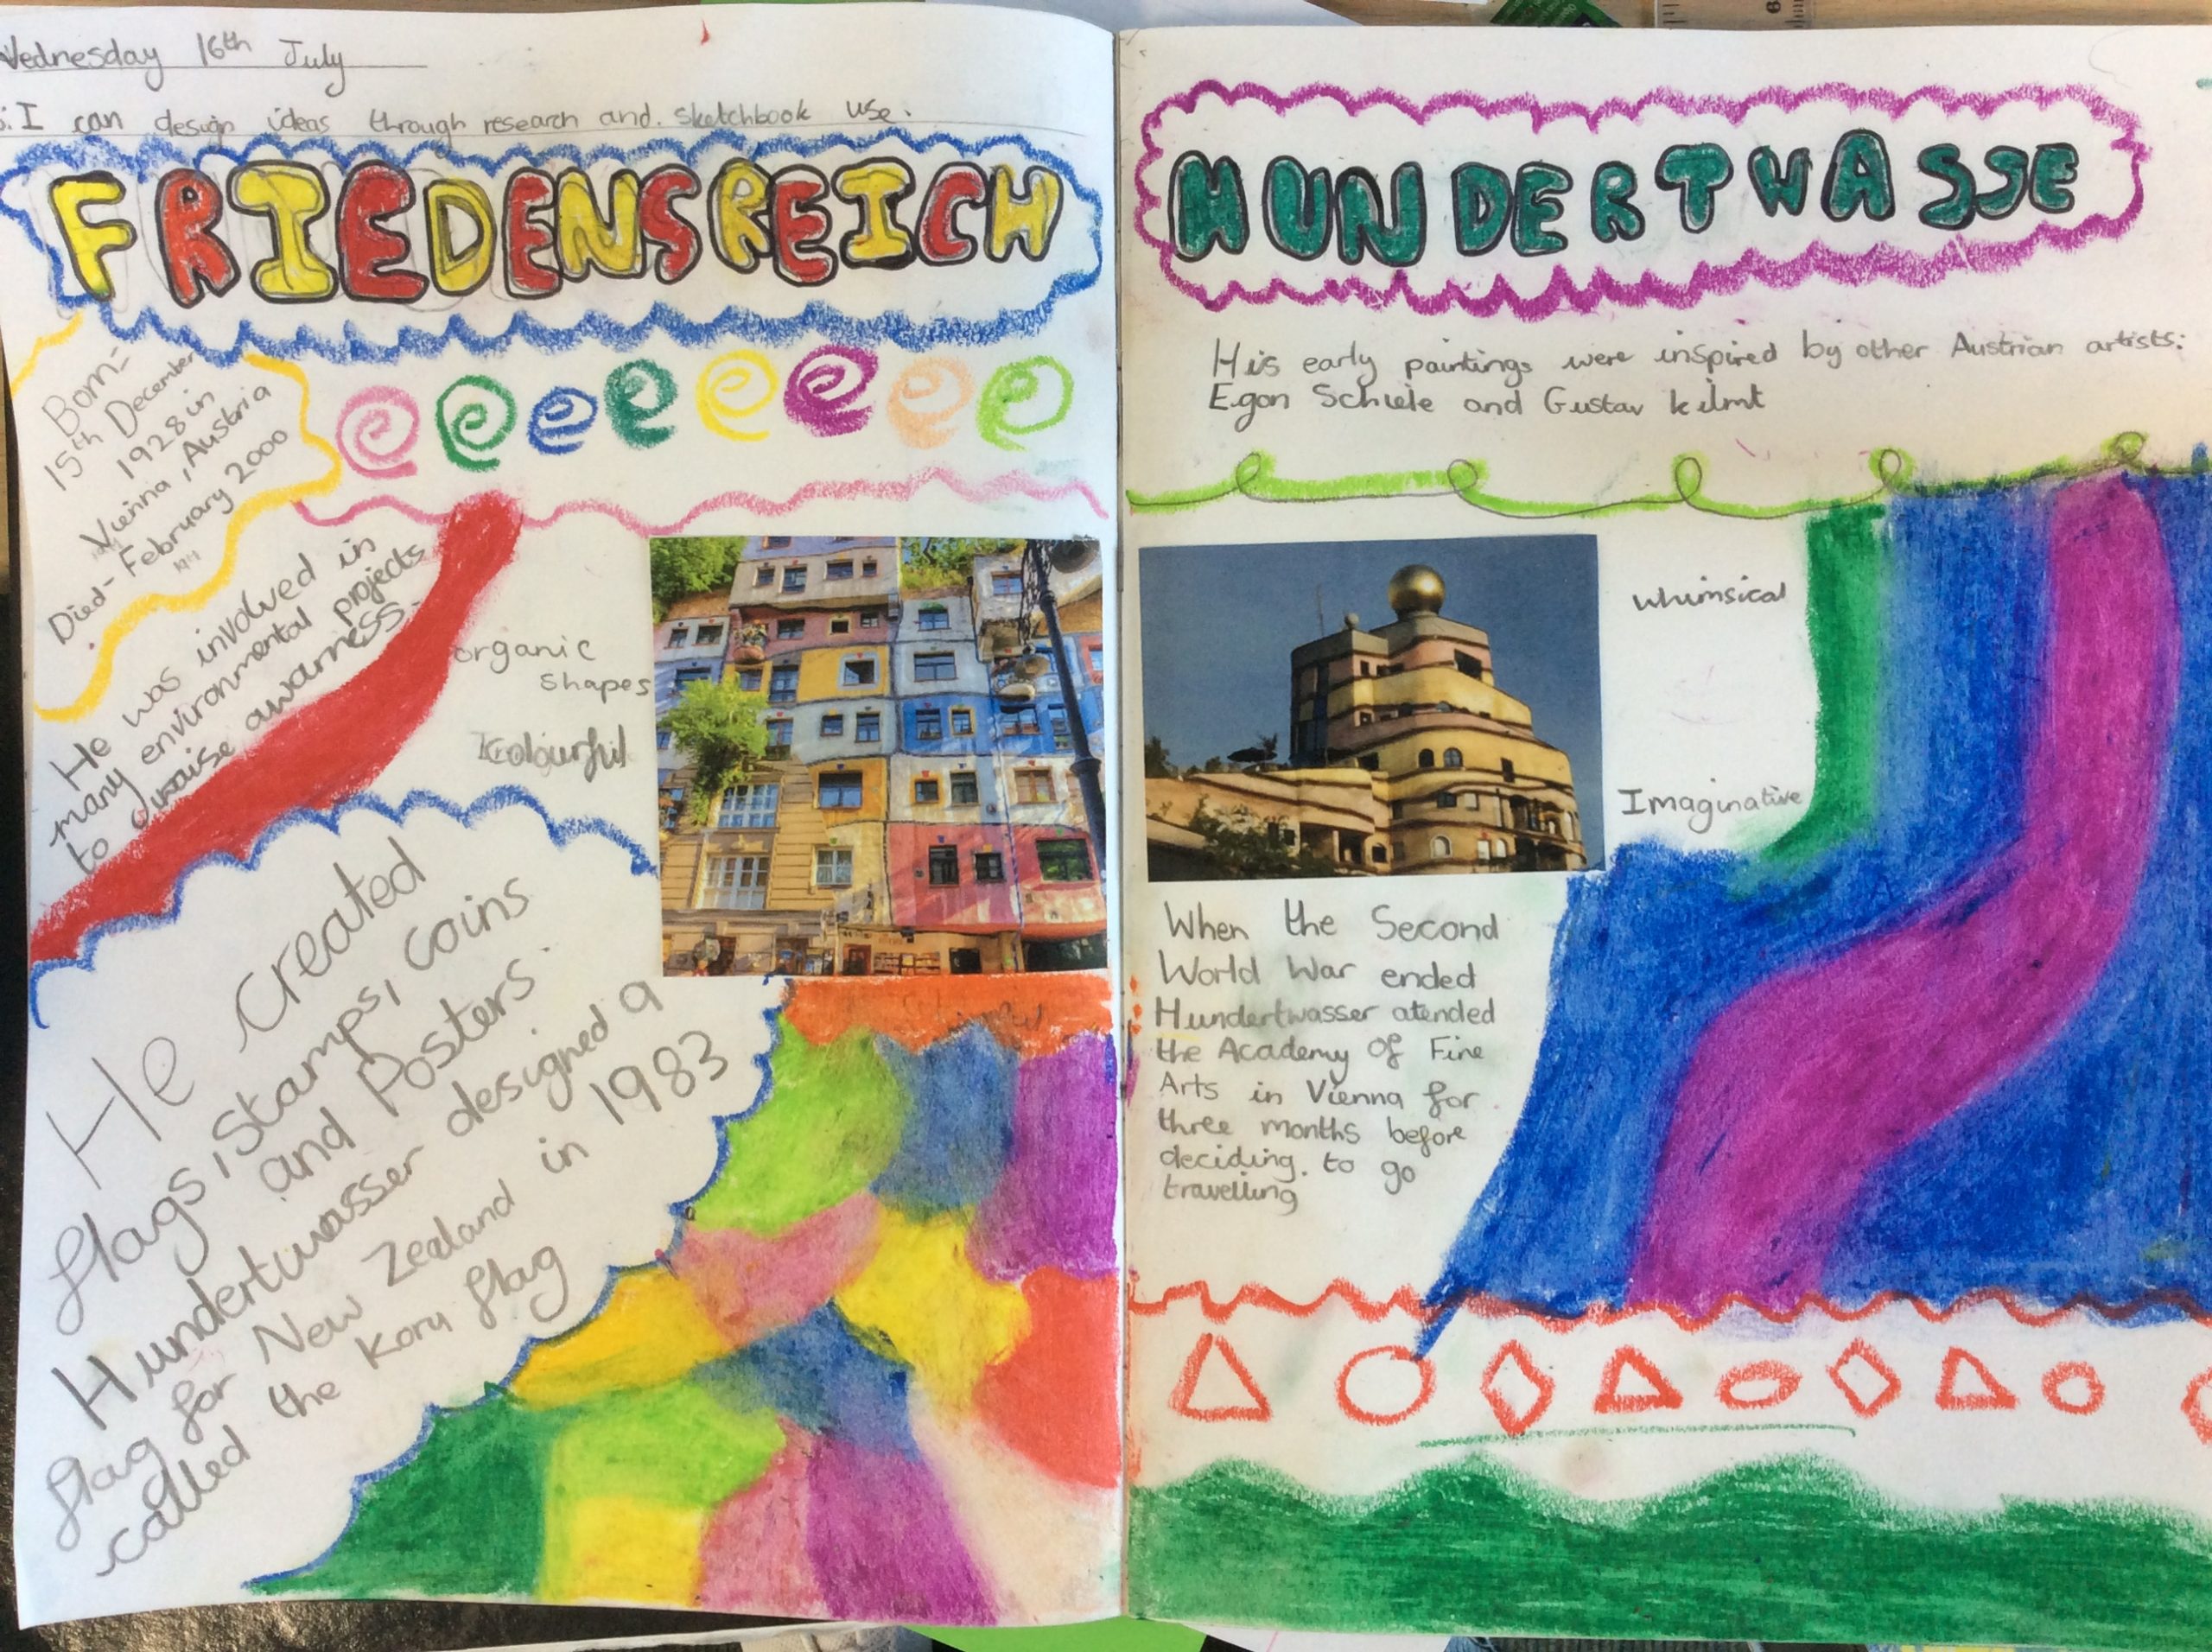 Wednesday 16th July
: I can design ideas through research and. sketchbook use.
FRIEDENSREICH
Born-
15th December
1928 in
Vienna, Austria
Died- February 2000
He was involved in
many environmental projects
to raise awarness.
organic
shapes
colourful
He created
flags, Stamps, coins
and Posters.
Hundertwasser designed a
flag for New Zealand in 1983
called the Koru flag
HUNDERTWASSE
His early paintings were inspired by other Austrian artists:
Egon Schiele and Gustav kilmt
whimsical
Imaginative
When the Second
World War ended
Hundertwasser atended
the Academy Of Fine
Arts in Vienna for
three months before
deciding. to go
travelling